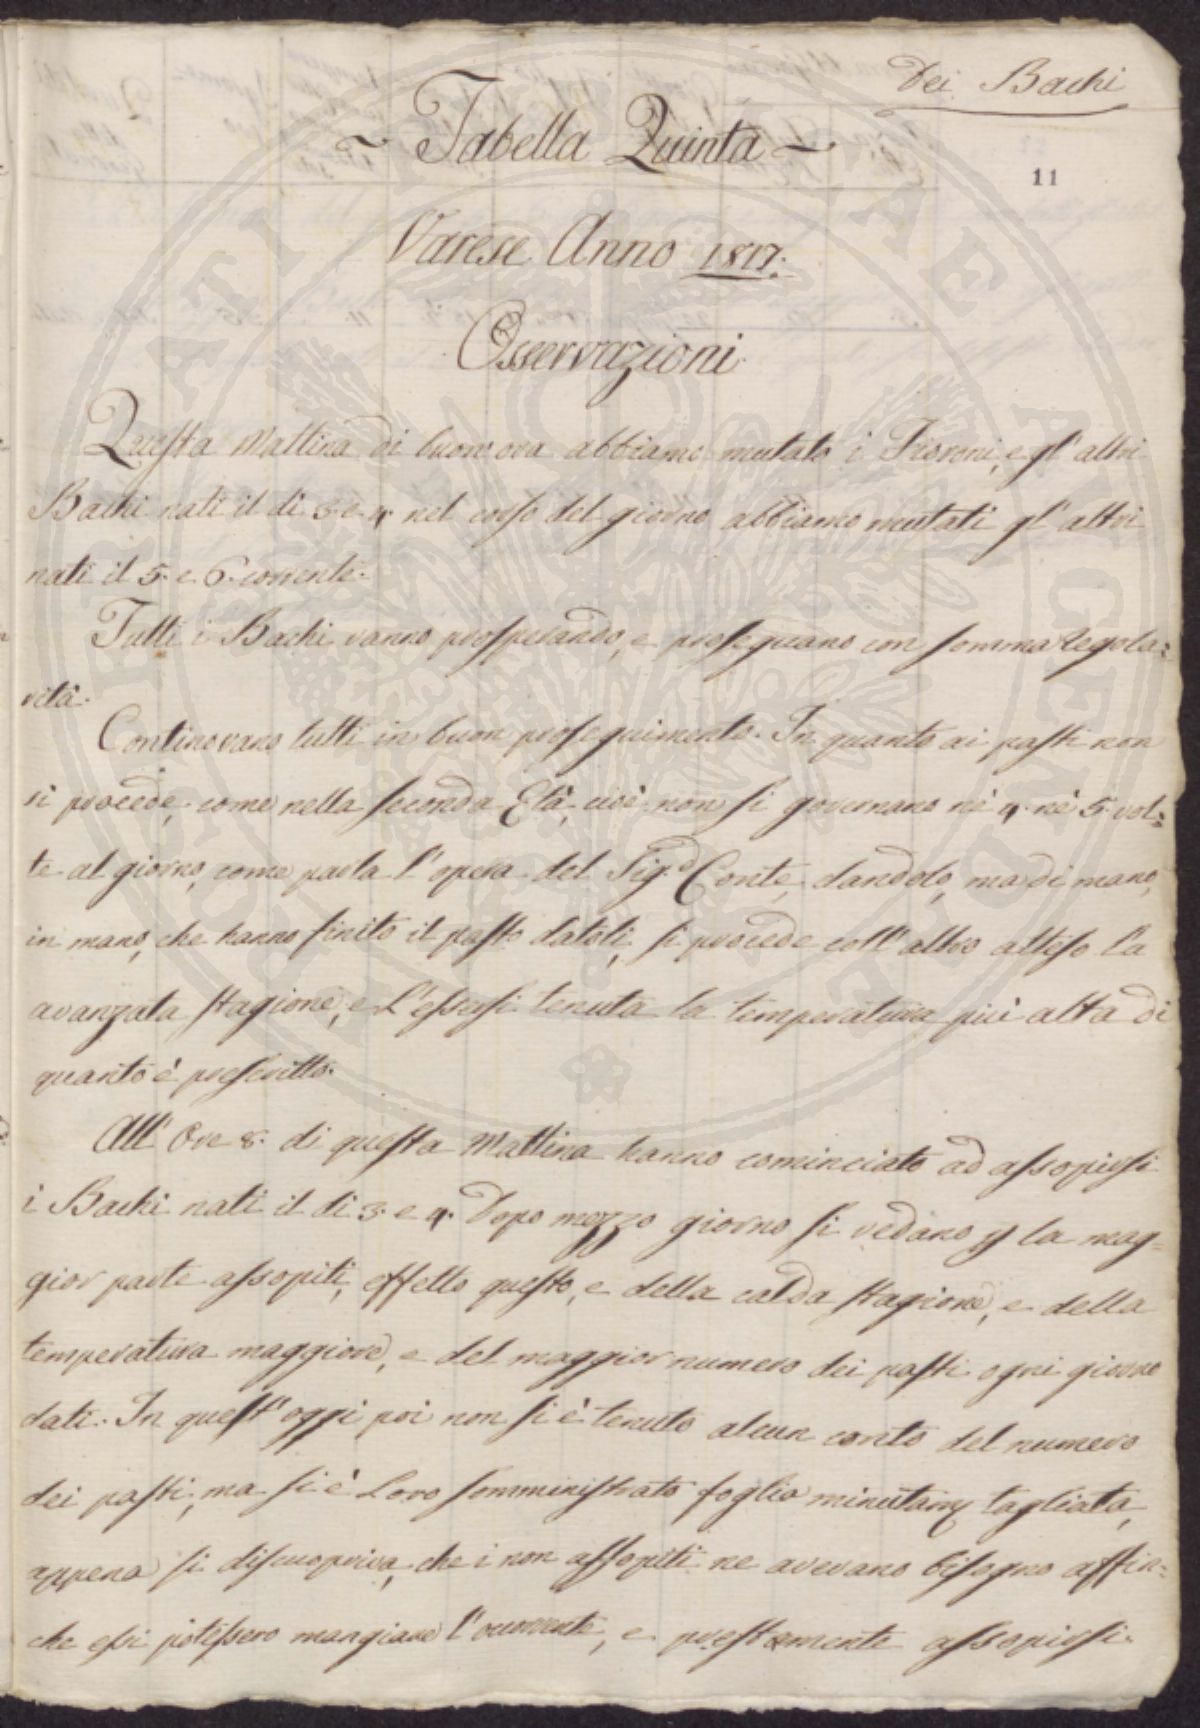 Dei Bachi
~ Tabella Quinta ~
11
Varese Anno 1817.
Osservazioni
Questa Mattina di buon' ora abbiamo mutato i Fioroni, e gl' altri
Bachi nati il di 3. e 4. nel corso del giorno abbiamo mutati gl' altri
nati il 5. e 6. corrente.
Tutti i Bachi vanno prosperando, e proseguano con somma regola:
rità.
Continovano tutti in buon proseguimento. In quanto ai pasti non
si procede, come nella seconda Età, cioè non si governano nè 4. nè 5. vol:
te al giorno, come parla l' opera del Sig.r Conte dandolo, ma di mano,
in mano, che hanno finito il pasto datoli, si procede coll' altro atteso l'a
avanzata stagione, e l' essersi tenuta la temperatura più alta di
quanto è prescritto.
All' Ore 8. di questa Mattina hanno cominciato ad assopirsi
i Bachi nati il di 3. e 4. Dopo mezzo giorno si vedano p la mag-
gior parte assopiti, effetto questo, e della calda stagione, e della
temperatura maggiore, e del maggior numero dei pasti ogni giorno
dati. In quest' oggi poi non si è tenuto alcun conto del numero
dei pasti, ma si è Loro somministrato foglia minutam.e tagliata,
appena si discuopriva, che i non assopiti ne avevano bisogno affin:
che essi potessero mangiare l' occorrente, e prestamente assopirsi.